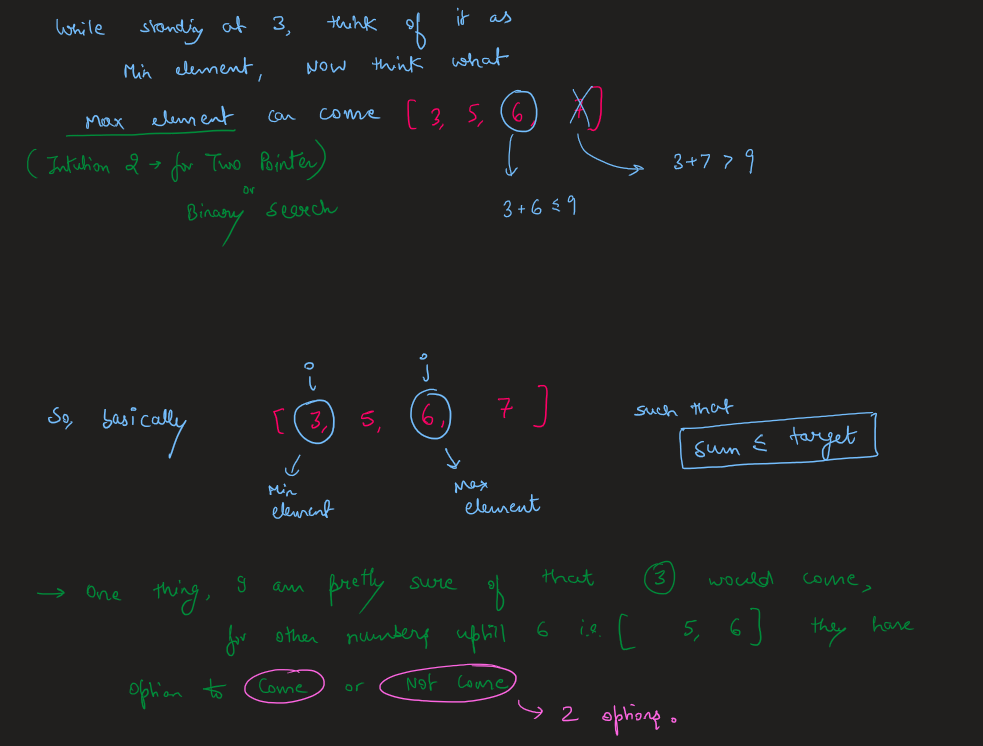 While standing at 3, think of it as
Min element, Now think what
Max element can come [ 3, 5, 6, 7 ]
(Intution 2 → for Two Pointer)
or
Binary Search
3+7 > 9
3+6 ≤ 9
i j
So, basically [ 3, 5, 6, 7 ]
such that
sum ≤ target
Min
element
Max
element
→ One thing, I am pretty sure of that 3 would come,
for other numbers uptill 6 i.e. [ 5, 6 ] they have
option to Come or Not Come
→ 2 options.